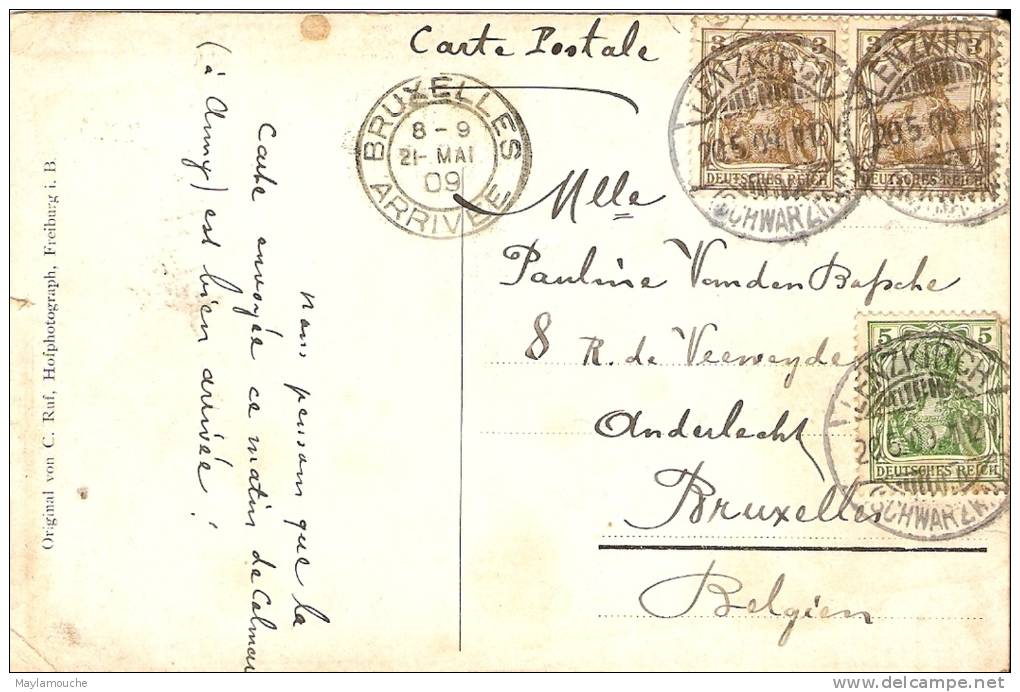 Carte Postale
3 3
DEUTSCHES REICH
3 3
DEUTSCHES REICH
LENZKIRCH
20.5.09
(SCHWARZW
LENZKIRCH
20.5.09
BRUXELLES
8-9
21- MAI
09
ARRIVÉE
Mlle
Pauline Vanden
8 R. de Veeweyde
Anderlecht
Bruxelles
Belgien
5 5
DEUTSCHES REICH
LENZKIRCH
20.5.09
(SCHWARZW
Nous pensons que la
Carte envoyée ce matin de Colmar
(à Anny) est bien arrivée!
Original von C. Ruf, Hofphotograph, Freiburg i. B.
Maylamouche
www.delcampe.net